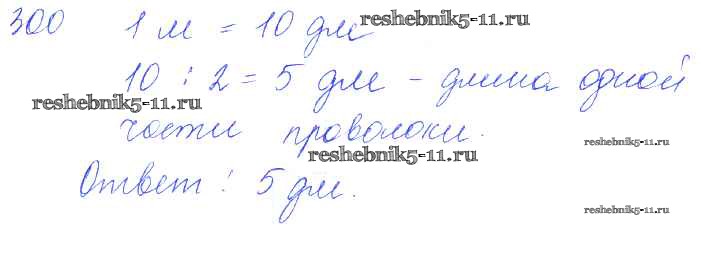 300 1 м = 10 дм reshebnik5-11.ru
10 : 2 = 5 дм - длина одной
reshebnik5-11.ru
части проволоки.
reshebnik5-11.ru
reshebnik5-11.ru
Ответ: 5 дм.
reshebnik5-11.ru